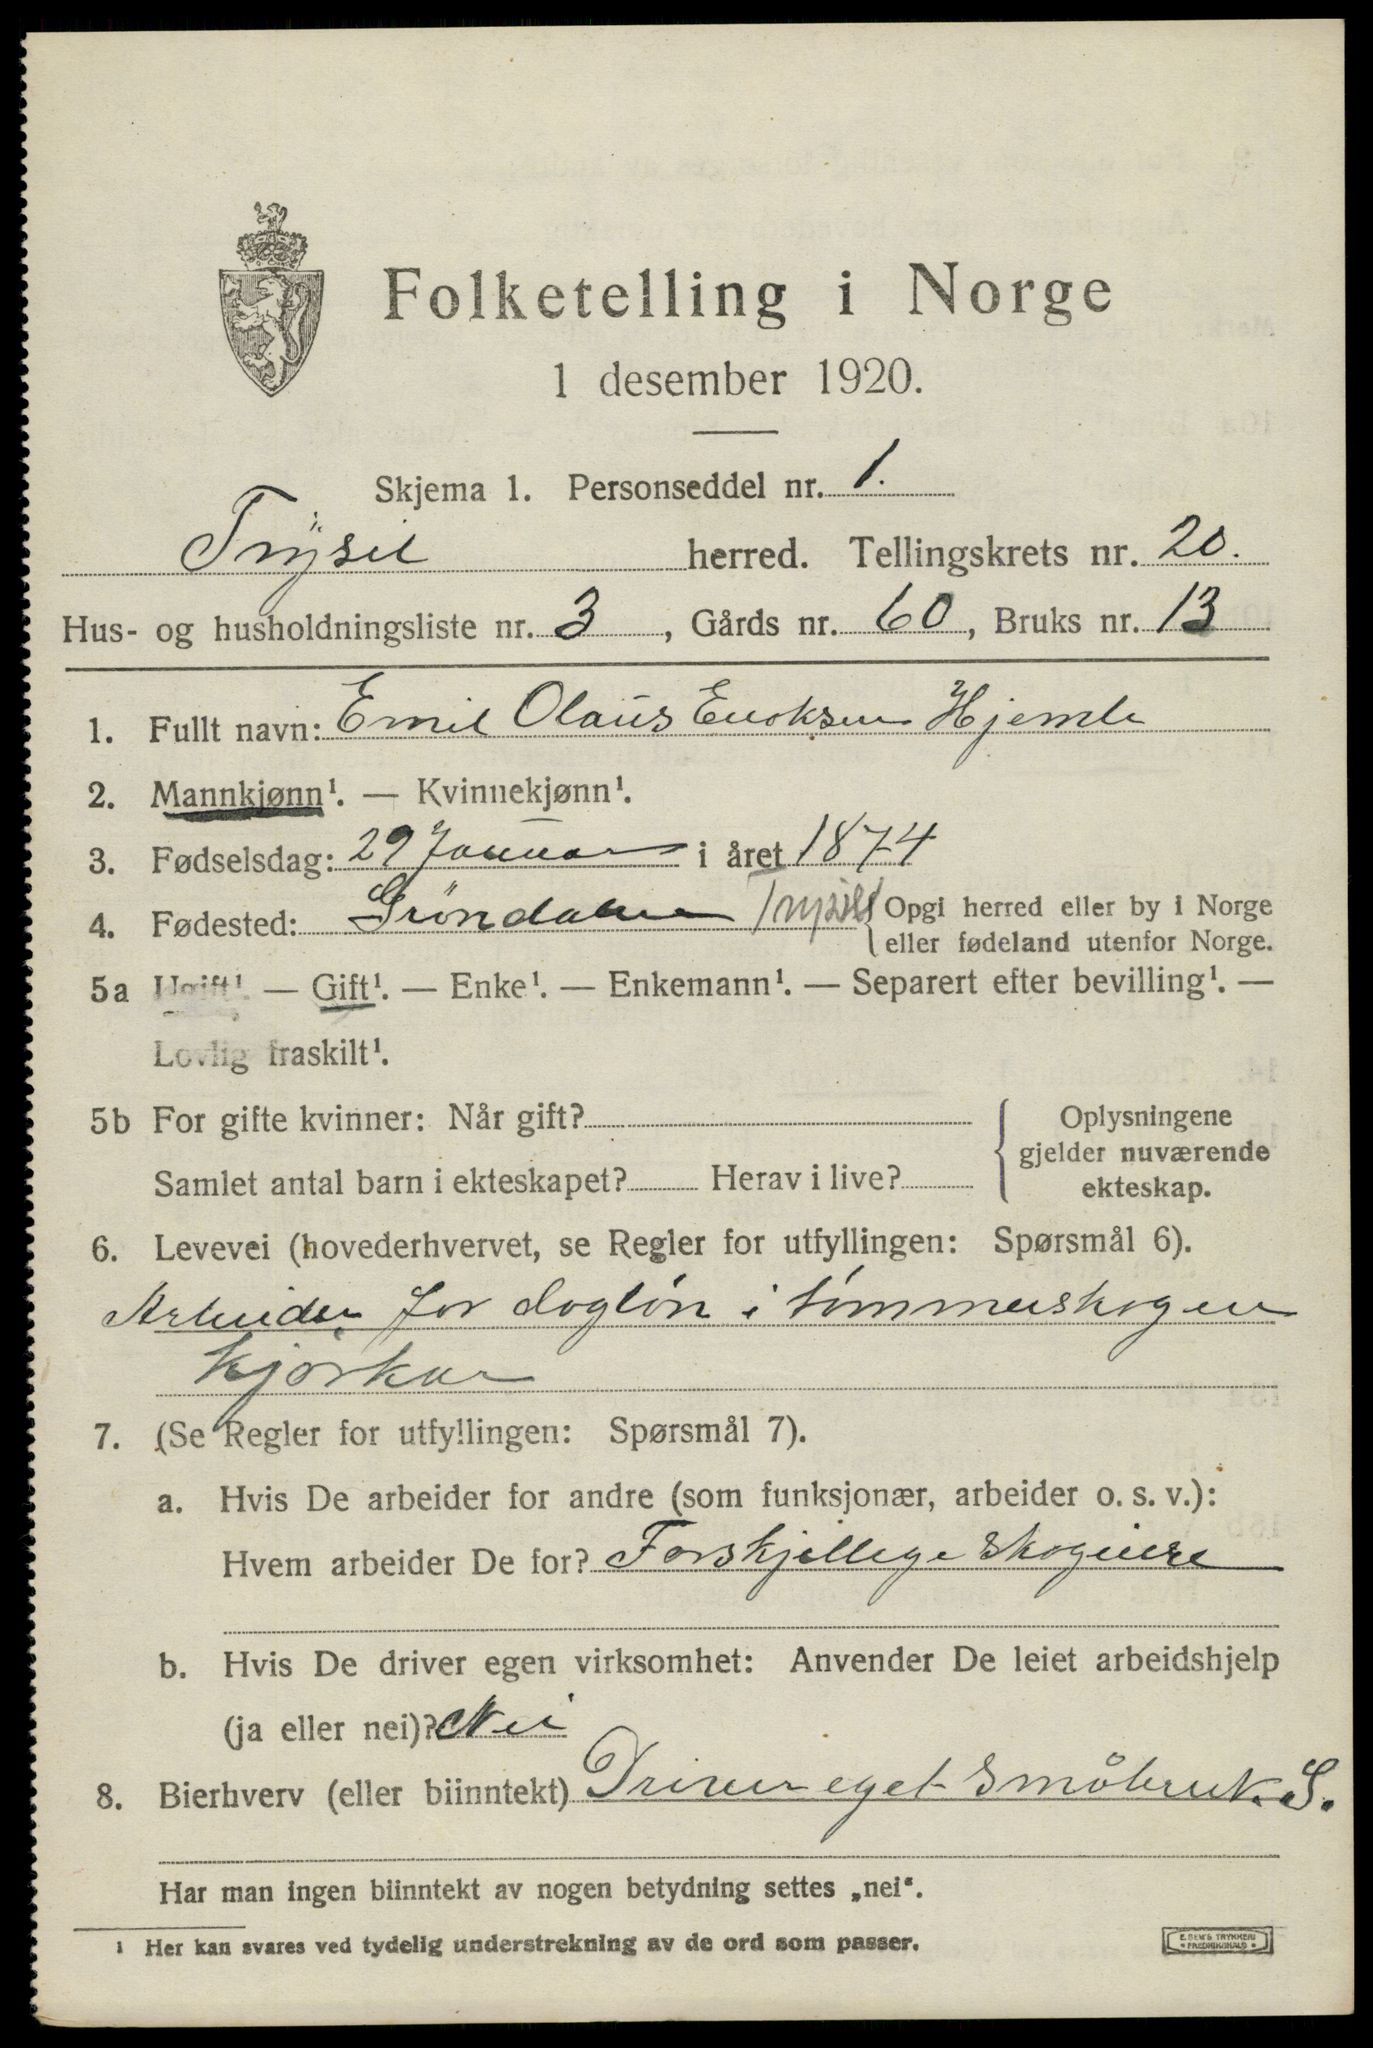 Folketelling i Norge
1 desember 1920.
Skjema 1. Personseddel nr. 1.
Trysil herred. Tellingskrets nr. 20.
Hus- og husholdningsliste nr. 3, Gårds nr. 60, Bruks nr. 13
1. Fullt navn: Emil Olaus Enoksen Hjemli
2. Mannkjønn¹. — Kvinnekjønn¹.
3. Fødselsdag: 29 Januar i året 1874
4. Fødested: Gröndalen Trysil { Opgi herred eller by i Norge
eller fødeland utenfor Norge.
5a Ugift¹. — Gift¹. — Enke¹. — Enkemann¹. — Separert efter bevilling¹. —
Lovlig fraskilt¹.
5b For gifte kvinner: Når gift? { Oplysningene
gjelder nuværende
Samlet antal barn i ekteskapet? Herav i live? ekteskap.
6. Levevei (hovederhvervet, se Regler for utfyllingen: Spørsmål 6).
Arbeider for daglön i tömmerskogen
kjörkar
7. (Se Regler for utfyllingen: Spørsmål 7).
a. Hvis De arbeider for andre (som funksjonær, arbeider o. s. v.):
Hvem arbeider De for? Forskjellige skogeiere
b. Hvis De driver egen virksomhet: Anvender De leiet arbeidshjelp
(ja eller nei)? Nei
8. Bierhverv (eller biinntekt) Driver eget småbruk. S.
Har man ingen biinntekt av nogen betydning settes „nei“.
¹ Her kan svares ved tydelig understrekning av de ord som passer.
E. SEM'S TRYKKERI
FREDRIKSHALD